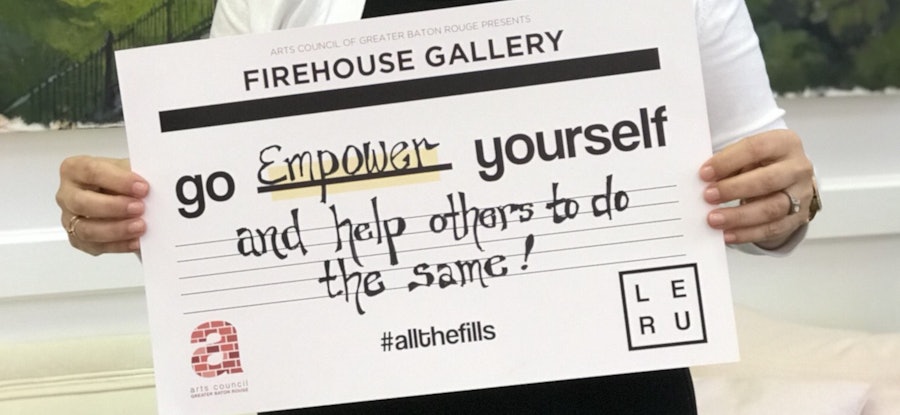 ARTS COUNCIL OF GREATER BATON ROUGE PRESENTS
FIREHOUSE GALLERY
go Empower yourself
and help others to do
the same!
#allthefills
L E
R U
a
arts council
GREATER BATON ROUGE